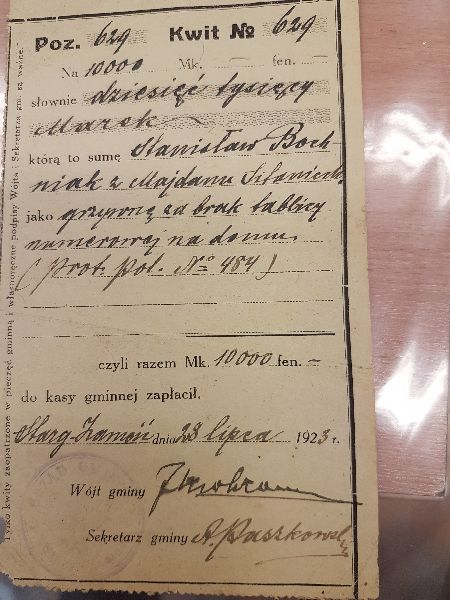 Poz. 629 Kwit № 629
Na 10000 Mk. — fen. —
słownie dziesięć tysięcy
Marek —
którą to sumę Stanisław Boch-
niak z Majdanu Sitaniec
jako grzywnę za brak tablicy
numerowej na domu.
(Prot. pol. № 484)
czyli razem Mk. 10000 fen. —
do kasy gminnej zapłacił.
Stary-Zamość dnia 28 lipca 1923 r.
Wójt gminy
Sekretarz gminy A. Paszkowski
Tylko kwity zaopatrzone w pieczęć gminną i własnoręczne podpisy Wójta i Sekretarza gm. są ważne.